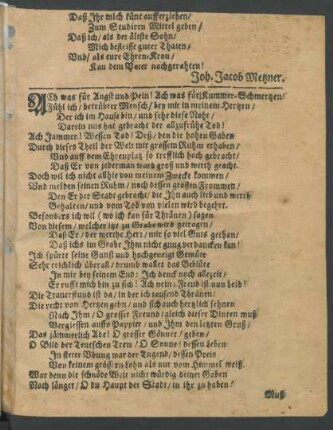 Daß Ihr mich künt aufferziehen/
Zum Studiren Mittel geben/
Daß ich/ als der älteste Sohn/
Mich befleisse guter Thaten/
Und/ als eure Ehren-Kron/
Kan dem Vater nachgerahten!
Joh. Jacob Metzner.
ACh was für Angst und Pein! Ach was für Kummer-Schmertzen/
Fühl ich/ betrübter Mensch/ bey mir in meinem Hertzen/
Der ich im Hause bin/ und sehe diese Noht/
Darein uns hat gebracht der allzufrühe Tod!
Ach Jammer! Wessen Tod? Deß/ den die hohen Gaben
Durch diesen Theil der Welt mit grossem Ruhm erhaben/
Und auff dem Ehrenplatz so trefflich hoch gebracht/
Daß Er von jederman ward groß und werth geacht.
Doch wil ich nicht allhie von meinem Zwecke kommen/
Und melden seinen Ruhm/ noch dessen grossen Frommen/
Den Er der Stadt gebracht/ die Ihn auch lieb und werth
Gehalten/ und vom Tod von vielen wird begehrt.
Besonders ich wil (wo ich kan für Thränen) sagen
Von diesem/ welcher itzt zu Grabe wird getragen/
Daß Er/ der werthe Herr/ mir so viel Guts gethan/
Daß ichs im Grabe Ihm nicht gnug verdancken kan!
Ich spürte seine Gunst und hochgeneigt Gemüte
Sehr reichlich überall/ drumb wallet das Geblüte
In mir bey seinem End: Ich denck noch allezeit/
Er rufft mich hin zu sich! Ach nein: Freud ist nun heid!
Die Traurstund ist da/ in der ich tausend Thränen/
Die recht von Hertzen gehn/ und sich auch hertzlich sehnen
Nach Ihm/ O grosser Freund/ gleich dieser Dinten muß
Vergiessen auffs Pappier/ und Ihm den letzten Gruß/
Das jämmerlich Ade! O grosser Gönner/ geben/
O Bild der Teutschen Treu/ O Sonne/ dessen Leben
In steter Ubung war der Tugend/ dessen Preis
Von keinem grössern Lohn als nur vom Himmel weiß.
War denn die schnöde Welt nicht würdig deiner Gaben
Noch länger/ O du Haupt der Stadt/ in ihr zu haben/
Muß